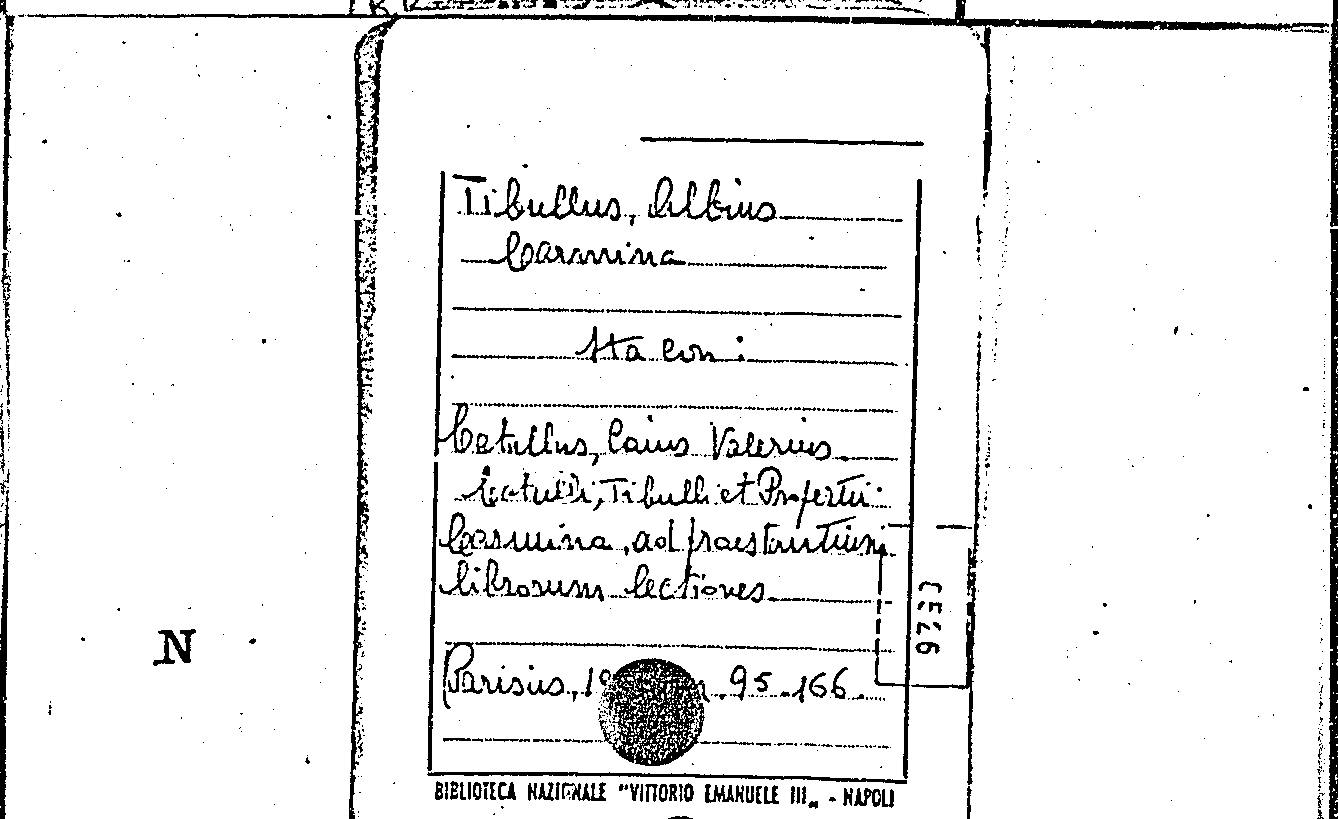 Tibullus, Albius
Carmina
Sta con:
Catullus, Caius Valerius
Catulli, Tibulli et Propertii
Carmina, ad praestantium
librorum lectiones
Parisiis, 95-166.
BIBLIOTECA NAZIONALE "VITTORIO EMANUELE III„ - NAPOLI
N